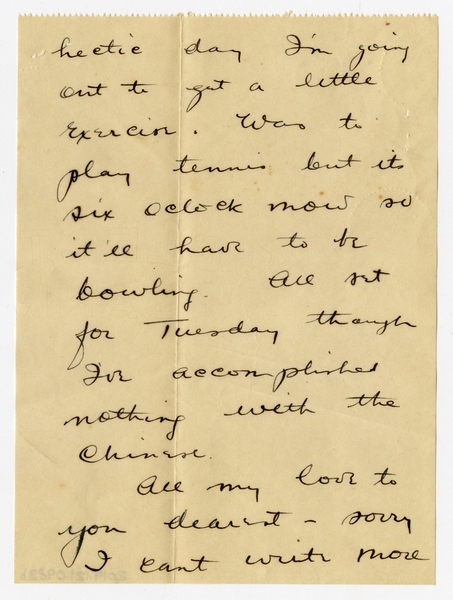 hectic day I'm going
out to get a little
exercise. Was to
play tennis but its
six oclock now so
it'll have to be
bowling. All set
for Tuesday though
I've accomplished
nothing with the
Chinese.
All my love to
you dearest - sorry
I cant write more